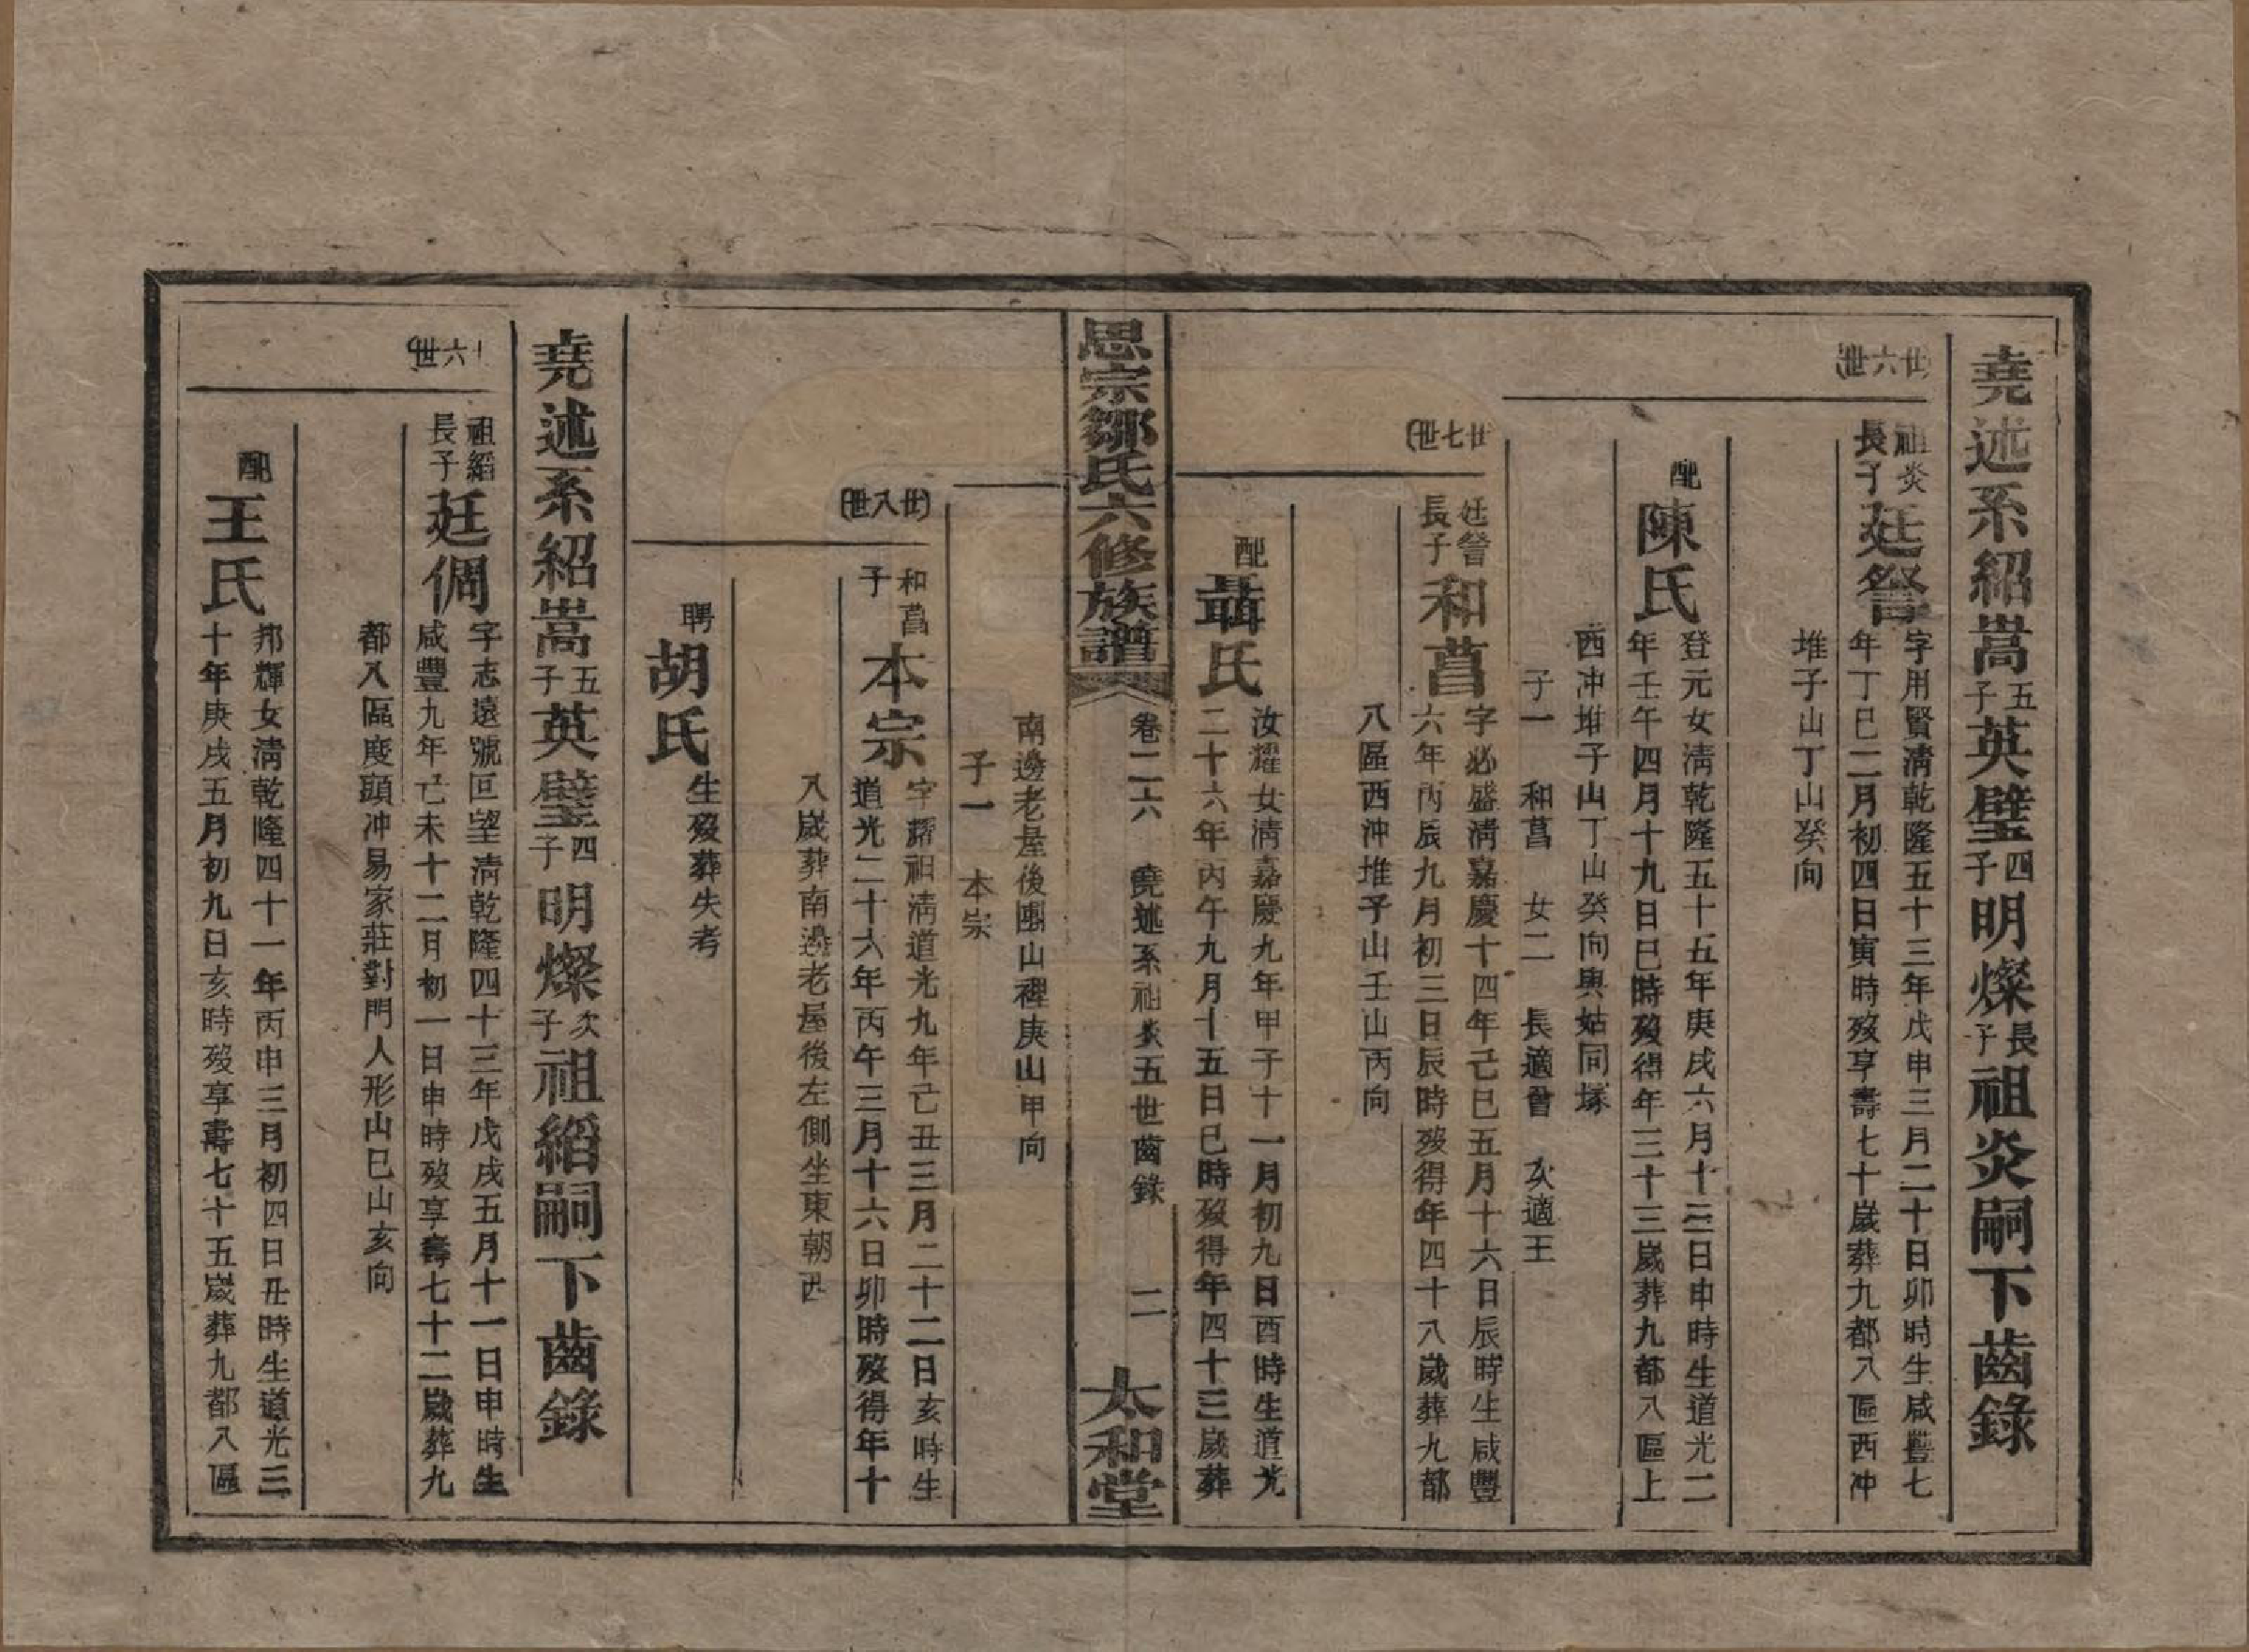 堯述系紹嵩五子英璧四子明燦長子祖炎嗣下齒錄
廿六世
祖炎長子廷詧
字用賢淸乾隆五十三年戊申三月二十日卯時生咸豐七
年丁巳二月初四日寅時歿享壽七十歲葬九都八區西冲
堆子山丁山癸向
配陳氏
登元女淸乾隆五十五年庚戌六月十三日申時生道光二
年壬午四月十九日巳時歿得年三十三歲葬九都八區上
西冲堆子山丁山癸向與姑同塚
子一 和菖 女二 長適曾 次適王
廿七世
廷詧長子和菖
字必盛淸嘉慶十四年己巳五月十六日辰時生咸豐
六年丙辰九月初三日辰時歿得年四十八歲葬九都
八區西冲堆子山壬山丙向
配聶氏
汝耀女淸嘉慶九年甲子十一月初九日酉時生道光
二十六年丙午九月十五日巳時歿得年四十三歲葬
思宗鄒氏六修族譜
卷二六 堯述系祖炎五世齒錄 二
太和堂
南邊老屋後園山裡庚山甲向
子一 本宗
廿八世
和菖子本宗
字耀祖淸道光九年己丑三月二十二日亥時生
道光二十六年丙午三月十六日卯時歿得年十
八歲葬南邊老屋後左側坐東朝西
聘胡氏
生歿葬失考
堯述系紹嵩五子英璧四子明燦次子祖縚嗣下齒錄
六世
祖縚長子廷倜
字志遠號回望淸乾隆四十三年戊戌五月十一日申時生
咸豐九年己未十二月初一日申時歿享壽七十二歲葬九
都八區度頭冲易家莊對門人形山巳山亥向
配王氏
邦輝女淸乾隆四十一年丙申三月初四日丑時生道光三
十年庚戌五月初九日亥時歿享壽七十五歲葬九都八區